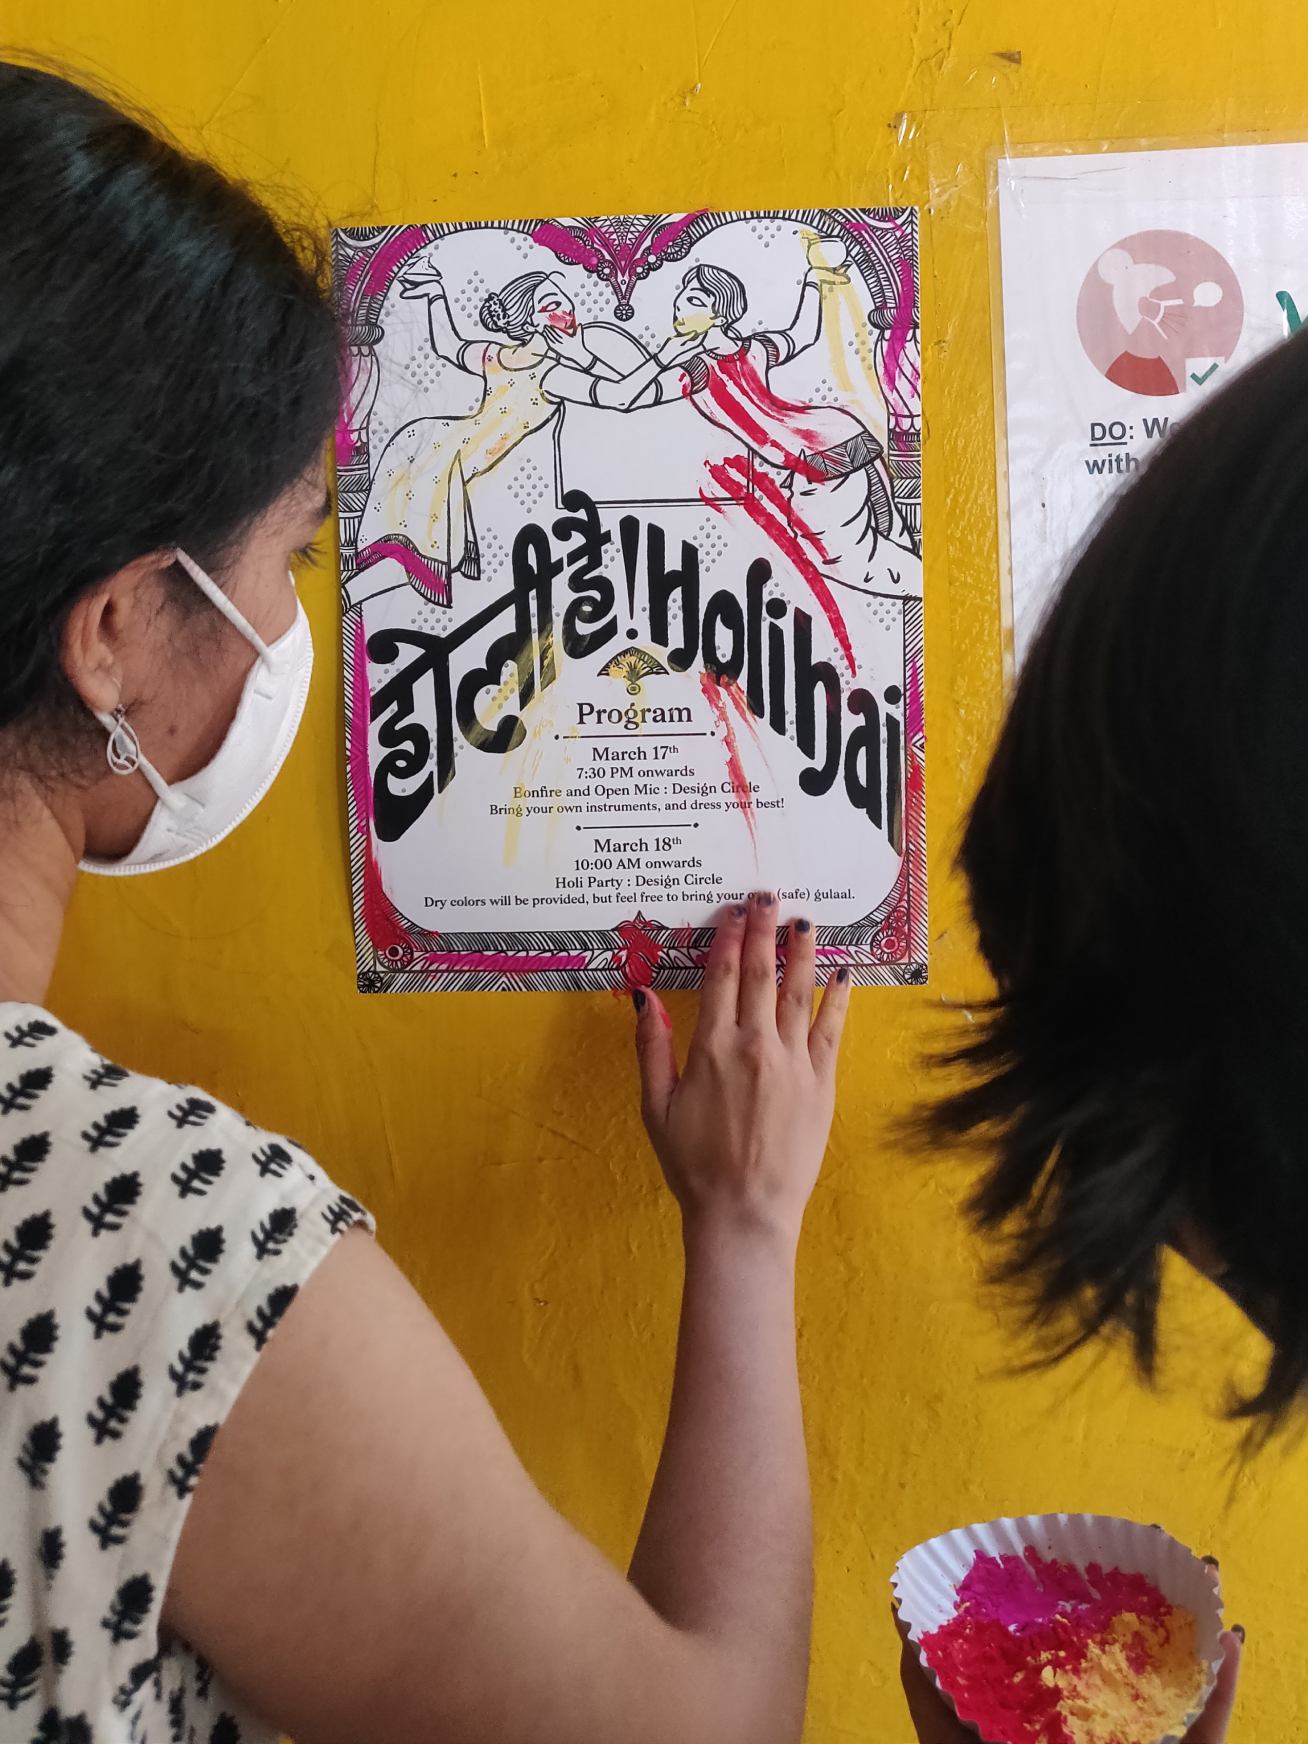 होली है! Holi hai
Program
March 17th
7:30 PM onwards
Bonfire and Open Mic : Design Circle
Bring your own instruments, and dress your best!
March 18th
10:00 AM onwards
Holi Party : Design Circle
Dry colors will be provided, but feel free to bring your own (safe) gulaal.
DO:
with